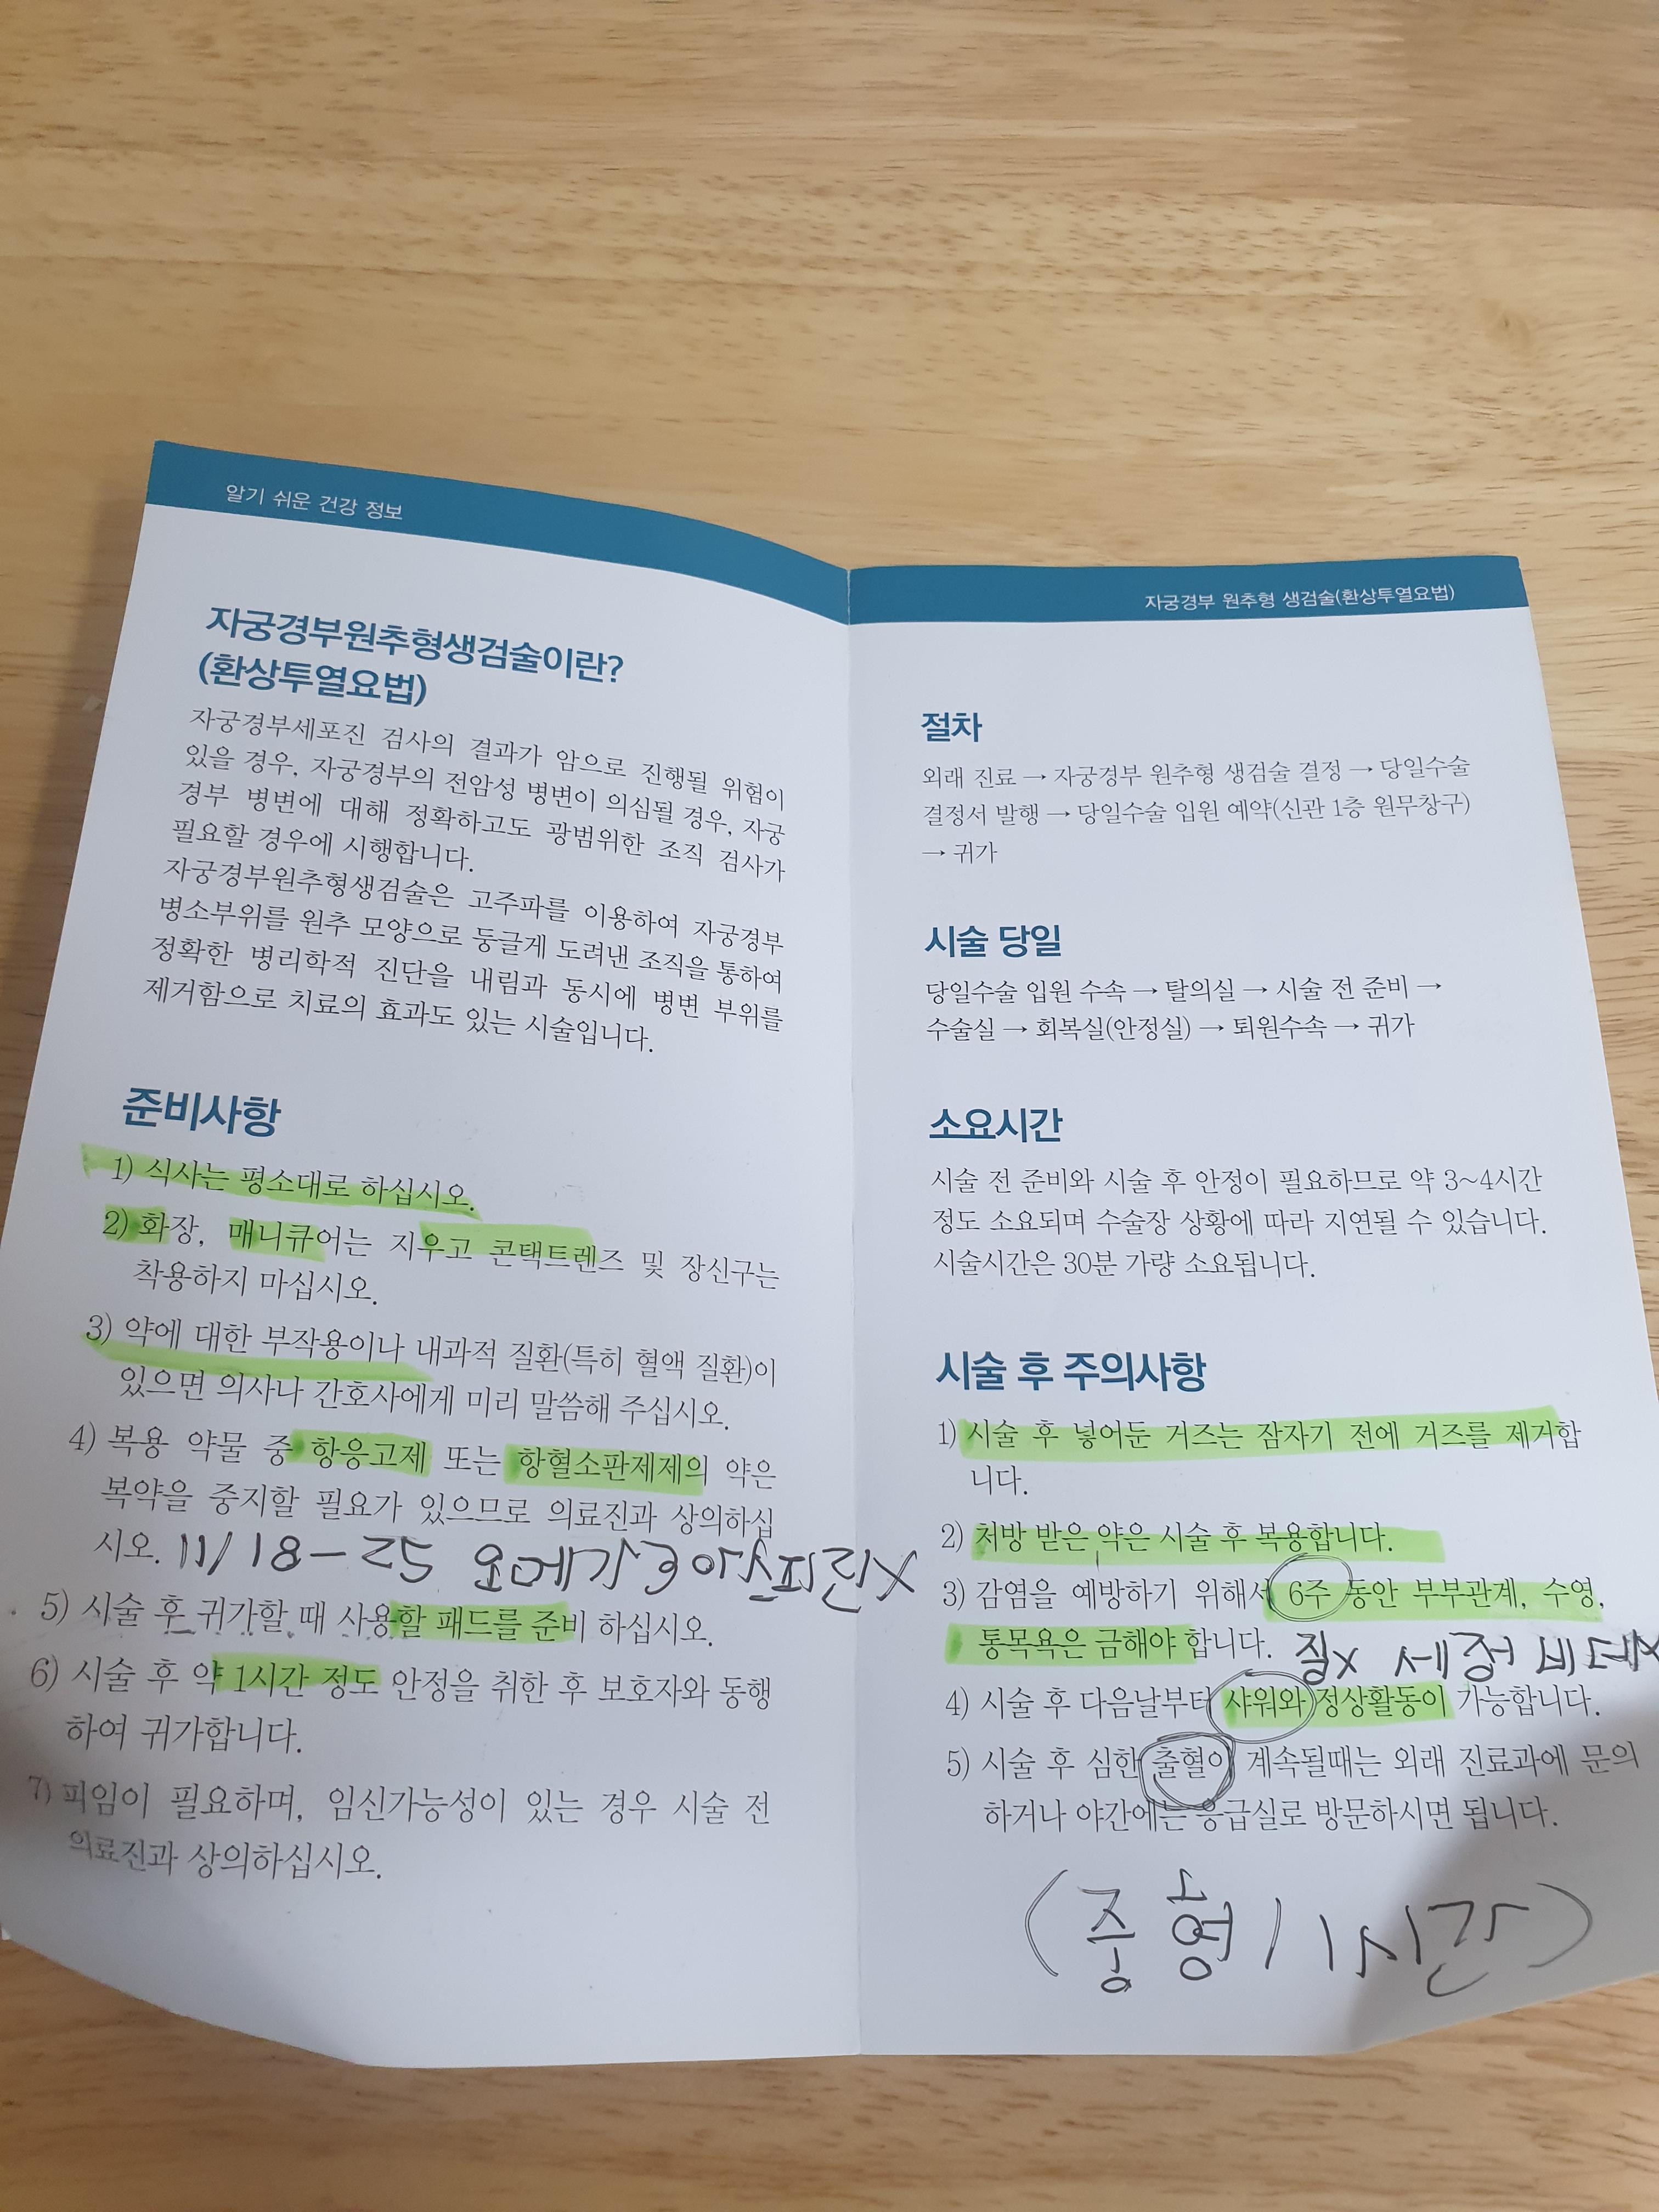 알기 쉬운 건강 정보
자궁경부원추형생검술이란?
(환상투열요법)
자궁경부세포진 검사의 결과가 암으로 진행될 위험이
있을 경우, 자궁경부의 전암성 병변이 의심될 경우, 자궁
경부 병변에 대해 정확하고도 광범위한 조직 검사가
필요할 경우에 시행합니다.
자궁경부원추형생검술은 고주파를 이용하여 자궁경부
병소부위를 원추 모양으로 둥글게 도려낸 조직을 통하여
정확한 병리학적 진단을 내림과 동시에 병변 부위를
제거함으로 치료의 효과도 있는 시술입니다.
준비사항
1) 식사는 평소대로 하십시오.
2) 화장, 매니큐어는 지우고 콘택트렌즈 및 장신구는
착용하지 마십시오.
3) 약에 대한 부작용이나 내과적 질환(특히 혈액 질환)이
있으면 의사나 간호사에게 미리 말씀해 주십시오.
4) 복용 약물 중 항응고제 또는 항혈소판제제의 약은
복약을 중지할 필요가 있으므로 의료진과 상의하십
시오. 11/18-25 오메가3 아스피린X
5) 시술 후 귀가할 때 사용할 패드를 준비 하십시오.
6) 시술 후 약 1시간 정도 안정을 취한 후 보호자와 동행
하여 귀가합니다.
7) 피임이 필요하며, 임신가능성이 있는 경우 시술 전
의료진과 상의하십시오.
자궁경부 원추형 생검술(환상투열요법)
절차
외래 진료 → 자궁경부 원추형 생검술 결정 → 당일수술
결정서 발행 → 당일수술 입원 예약(신관 1층 원무창구)
→ 귀가
시술 당일
당일수술 입원 수속 → 탈의실 → 시술 전 준비 →
수술실 → 회복실(안정실) → 퇴원수속 → 귀가
소요시간
시술 전 준비와 시술 후 안정이 필요하므로 약 3~4시간
정도 소요되며 수술장 상황에 따라 지연될 수 있습니다.
시술시간은 30분 가량 소요됩니다.
시술 후 주의사항
1) 시술 후 넣어둔 거즈는 잠자기 전에 거즈를 제거합
니다.
2) 처방 받은 약은 시술 후 복용합니다.
3) 감염을 예방하기 위해서 6주 동안 부부관계, 수영,
통목욕은 금해야 합니다. 질X 세정 비데X
4) 시술 후 다음날부터 샤워와 정상활동이 가능합니다.
5) 시술 후 심한 출혈이 계속될때는 외래 진료과에 문의
하거나 야간에는 응급실로 방문하시면 됩니다.
(중형/1시간)